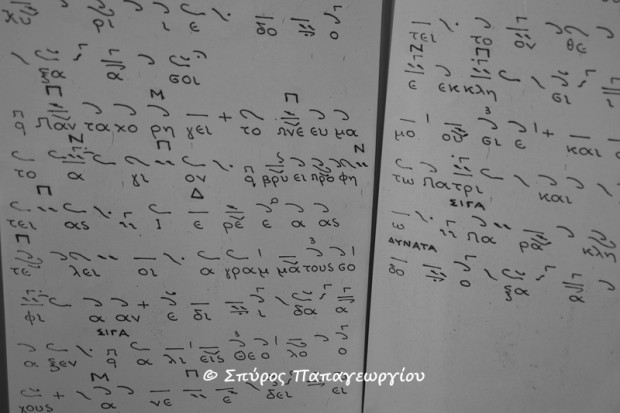 χυ ρι ι ε δο ο
ξα α σοι
Παν τα χο ρη γει το Πνε ευ μα
το α γι ον βρυ ει προ φη
τει ας ι ε ρε ε α ας
τε λει οι α γραμ μα τους σο
φι α αν ε δι ι δα α
ΣΙΓΑ
α ξεν α λι εις θε ο λο ο
χους α νε ε ε δει ει
τει το ον θε
ε εκ κλη σι
μο ου σι ε και
τω Πα τρι και
ΣΙΓΑ
ω Πα ρα κλη
ΔΥΝΑΤΑ
δο ο ξα α
© Σπύρος Παπαγεωργίου